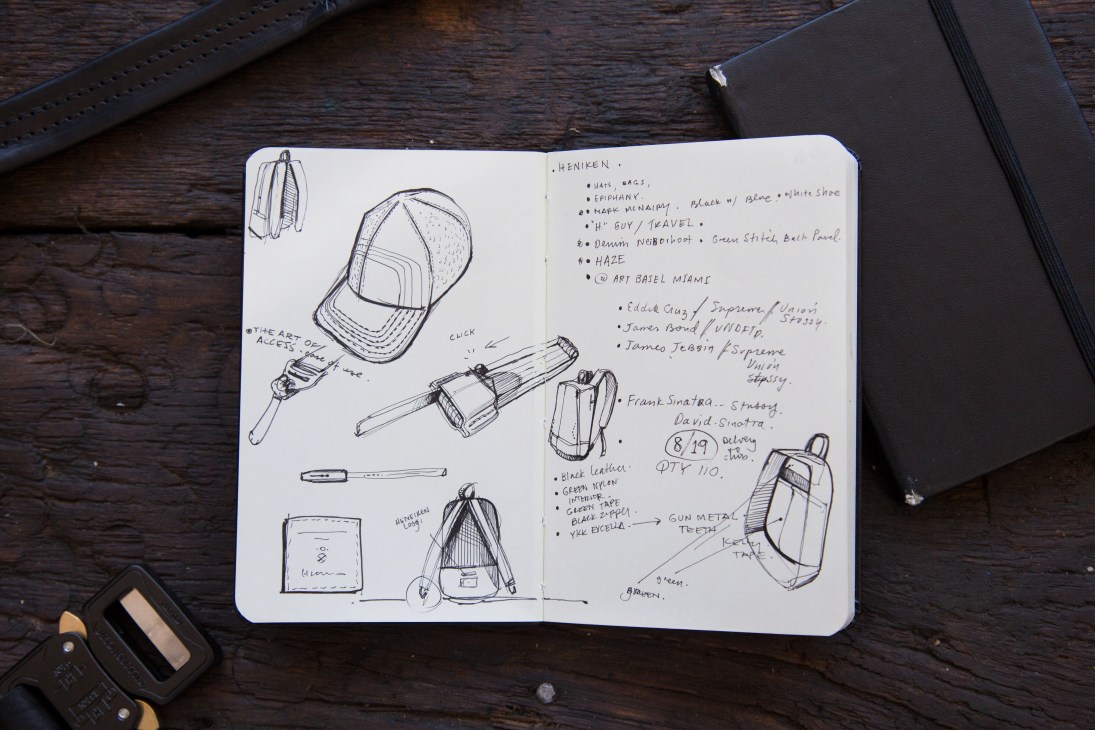 THE ART OF
ACCESS. ease of use.
CLICK
HEINEIKEN
Logo:
. HENIKEN .
• HATS, BAGS,
• EPIPHANY.
• MARK MCNAIRY. Black w/ Blue. • White Shoe
• "H" GUY / TRAVEL •
• Denim • Green Stitch Back Panel.
• HAZE
• @ ART BASEL MIAMI
• Eddie Cruz / Supreme / Union
Stussy.
• James Bond / UNDFTD.
• James Jebbia / Supreme
Union
Stussy.
• Frank Sinatra -- Stussy.
David. Sinatra.
8/19 Delivery
to
QTY 110.
• Black leather.
• GREEN NYLON
INTERIOR.
• GREEN TAPE
BLACK ZIPPER.
• YKK EXCELLA → GUN METAL
TEETH
KELLY
TAPE.
green.